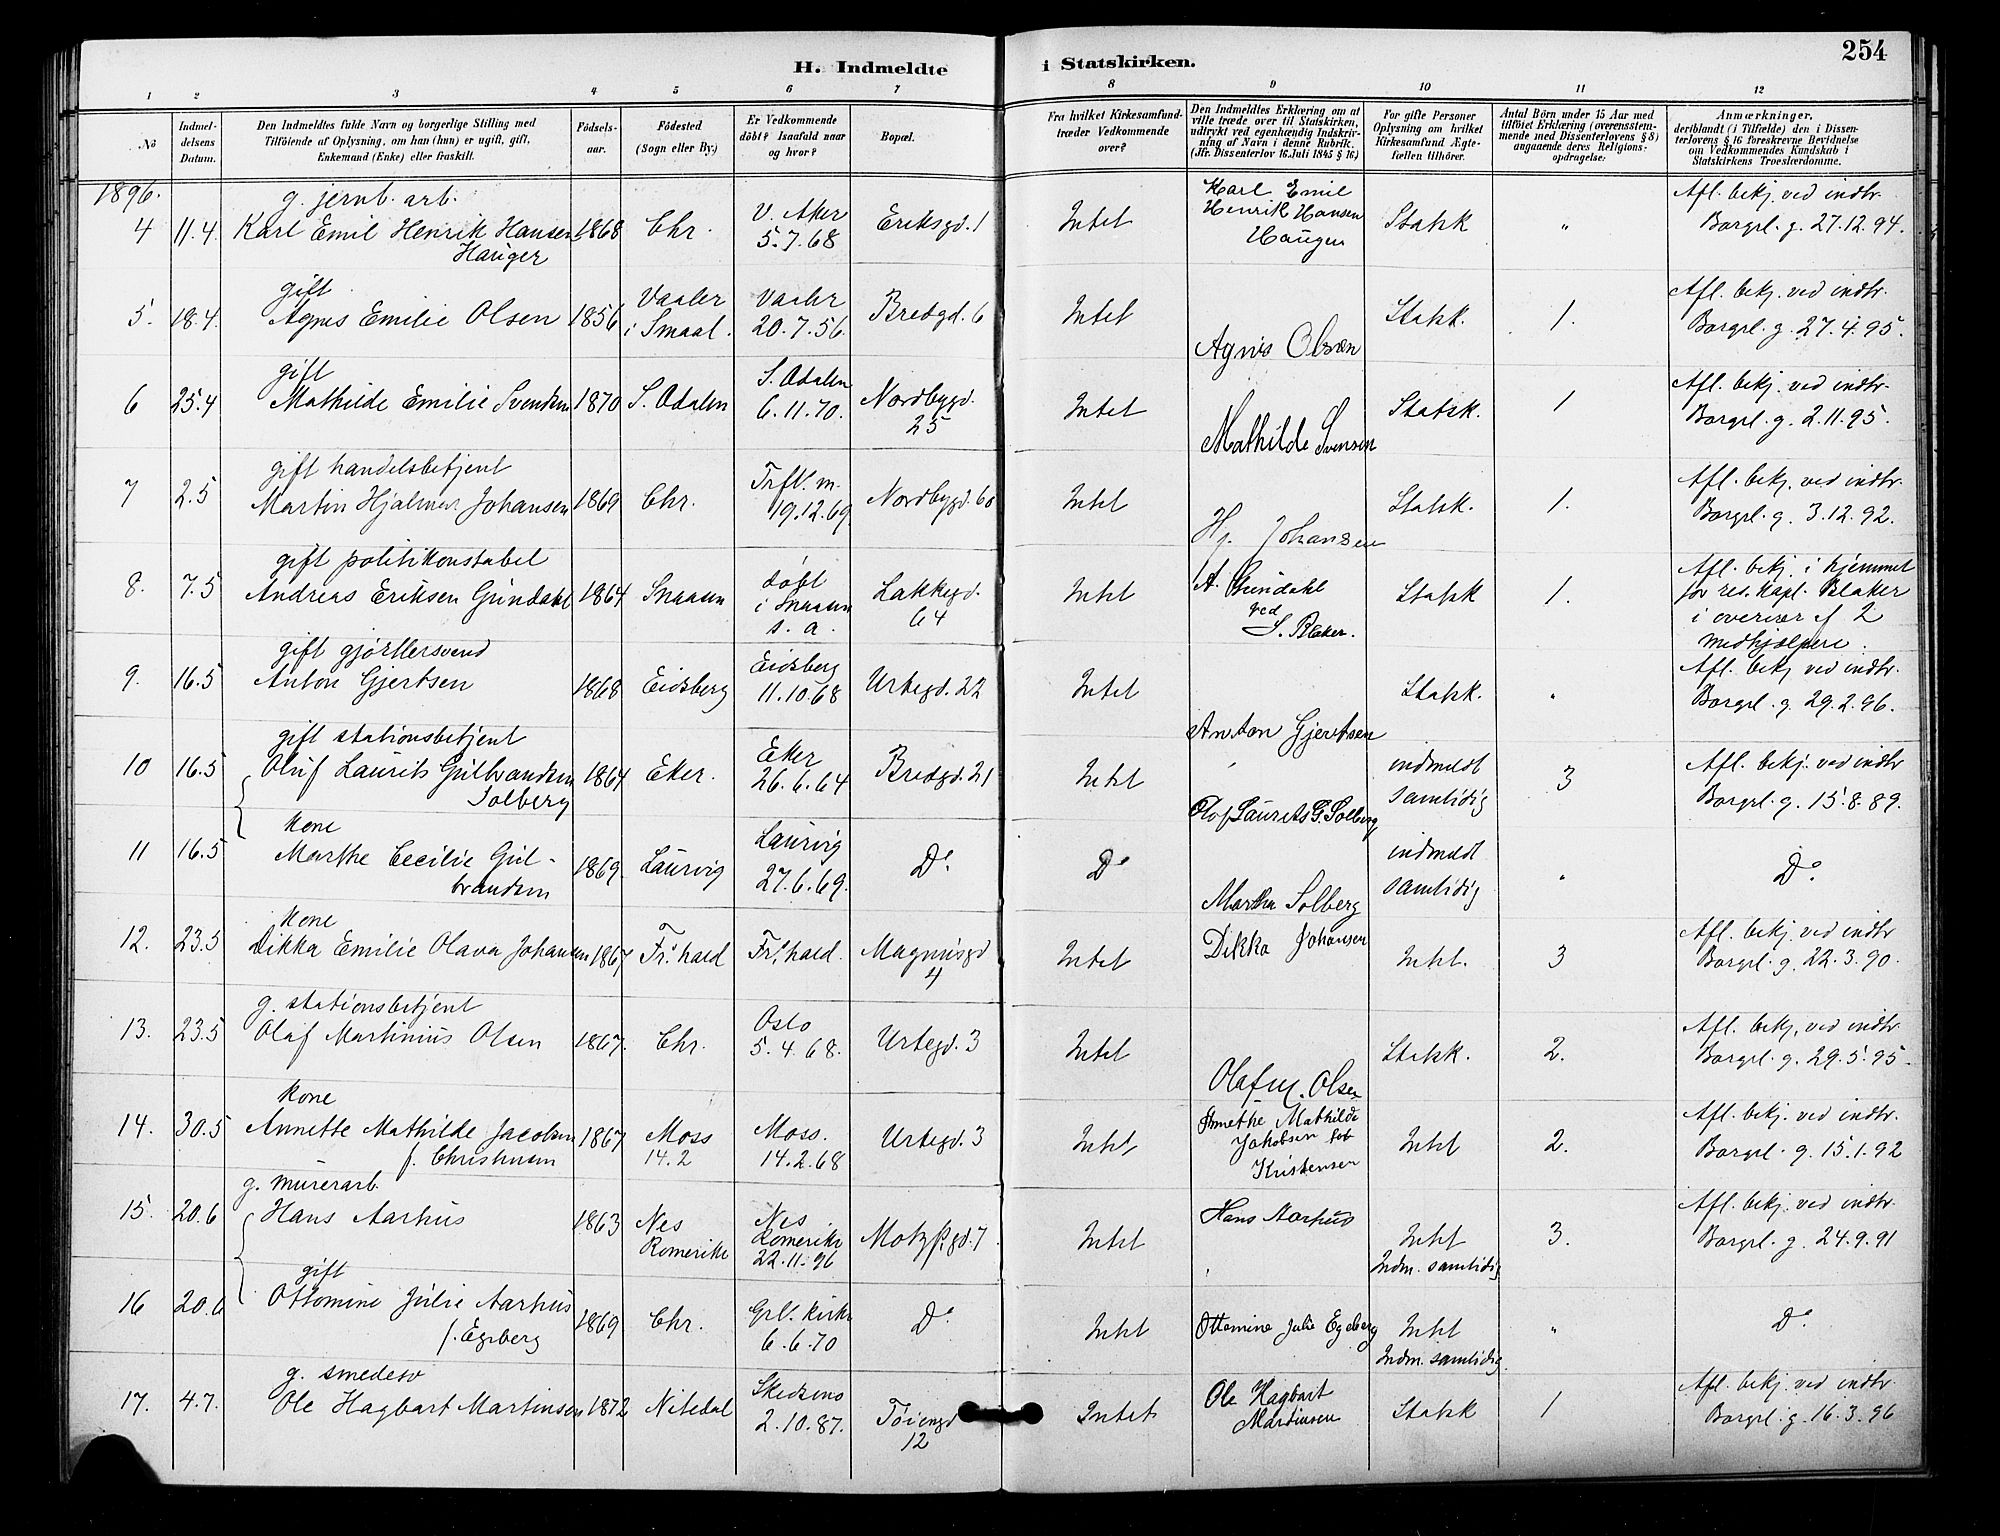 254
H. Indmeldte i Statskirken.
1 2 3 4 5 6 7 8 9 10 11 12
No
Indmel-
delsens
Datum.
Den Indmeldtes fulde Navn og borgerlige Stilling med
Tilföiende af Oplysning, om han (hun) er ugift, gift,
Enkemand (Enke) eller fraskilt.
Födsels-
aar.
Födested
(Sogn eller By.)
Er Vedkommende
döbt? Isaafald naar
og hvor?
Bopæl.
Fra hvilket Kirkesamfund
træder Vedkommende
over?
Den Indmeldtes Erklæring om at
ville træde over til Statskirken,
udtrykt ved egenhændig Indskriv-
ning af Navn i denne Rubrik.
(Jfr. Dissenterlov 16. Juli 1845 § 16.)
For gifte Personer
Oplysning om hvilket
Kirkesamfund Ægte-
fællen tilhörer.
Antal Börn under 15 Aar med
tilföiet Erklæring (overensstem-
mende med Dissenterlovens § 8)
angaaende deres Religions-
opdragelse.
Anmærkninger,
deriblandt (i Tilfælde) den i Dissen-
terlovens § 16 foreskrevne Bevidnelse
om Vedkommendes Kundskab i
Statskirkens Troeslærdomme.
1896.
g. jernb. arb.
4 11.4. Karl Emil Henrik Hansen 1868 Chr. V. Aker Eriksgd. 1 Intet Karl Emil Statsk " Afl. bekj. ved indtr.
Hauger 5.7.68 Henrik Hansen Borgel. g. 27.12.94.
Haugen
gift
5. 18.4. Agnes Emilie Olsen 1856 Vaaler Vaaler Bredgd. 6 Intet Agnes Olsen Statsk. 1. Afl. bekj. ved indtr.
i Smaal. 20.7.56. Borgel. g. 27.4.95.
gift
6 25.4 Mathilde Emilie Svendsen 1870 S. Odalen S. Odalen Nordbygd. Intet Mathilde Svensen Statsk. 1 Afl. bekj. ved indtr.
6.11.70. 25 Borgel. g. 2.11.95.
gift handelsbetjent
7 2.5 Martin Hjalmar Johansen 1869 Chr. Trft. m. Nordbygd. 60 Intet Hj. Johansen Statsk. 1. Afl. bekj. ved indtr.
19.12.69 Borgel. g. 3.12.92.
gift politikonstabel
8. 7.5 Andreas Eriksen Gründahl 1864 Snaasen døbt Lakkegd. Intet A. Gründahl Statsk 1. Afl. bekj. i hjemmet
i Snaasen 64 ved for res. kapl. Blaker
s. a. S. Blaker. i overvær af 2
medhjælpere.
gift gjørtlersvend
9. 16.5 Anton Gjertsen 1868 Eidsberg Eidsberg Urtegd. 22 Intet Anton Gjertsen Statsk. " Afl. bekj. ved indtr.
11.10.68 Borgel. g. 29.2.96.
gift stationsbetjent
10 16.5 Oluf Laurits Gulbrandsen 1864 Eker. Eker Bredgd. 21 Intet Olof Laurets G. Solberg indmeldt 3 Afl. bekj. ved indtr
Solberg 26.6.64 samtidig Borgel. g. 15.8.89.
kone
11 16.5 Marthe Cecilie Gul- 1869. Laurvig Laurvig Do. Do Martha Solberg indmeldt " Do.
brandsen 27.6.69. samtidig
kone
12. 23.5 Dikka Emilie Olava Johansen 1867 Fr.hald Fr.hald. Magnusgd Intet Dikka Johansen Intet. 3 Afl. bekj. ved indtr
4 Borgel. g. 22.3.90.
g. stationsbetjent
13. 23.5 Olaf Martinius Olsen 1867. Chr. Oslo Urtegd. 3 Intet Olaf M. Olsen Statsk. 2. Afl. bekj. ved indtr.
5.4.68. Borgel. g. 29.5.95.
kone
14. 30.5 Annette Mathilde Jacobsen 1867 Moss Moss. Urtegd. 3 Intet Annethe Mathilde Intet 2. Afl. bekj. ved indtr.
f. Christensen 14.2 14.2.68 Jakobsen föt Borgel. g. 15.1.92
Kristensen
g. murerarb.
15. 20.6 Hans Aarhus 1863 Nes Nes Motzfgd. 7 Intet Hans Aarhus Intet 3. Afl. bekj. ved indtr.
Romerike Romerike Indm. samtidig Borgel. g. 24.9.91
22.11.96
gift
16 20.6 Ottomine Julie Aarhus 1869 Chr. Grl. kirke Do Intet Ottomine Julie Egeberg Intet " Do.
f. Egeberg 6.6.70 Indm. samtidig
g. smedesv
17. 4.7. Ole Hagbart Martinsen 1872 Nitedal Skedsmo Tøiengd Intet Ole Hagbart Statsk 1 Afl. bekj. ved indtr.
2.10.87. 12 Martinsen Borgel. g. 16.3.96